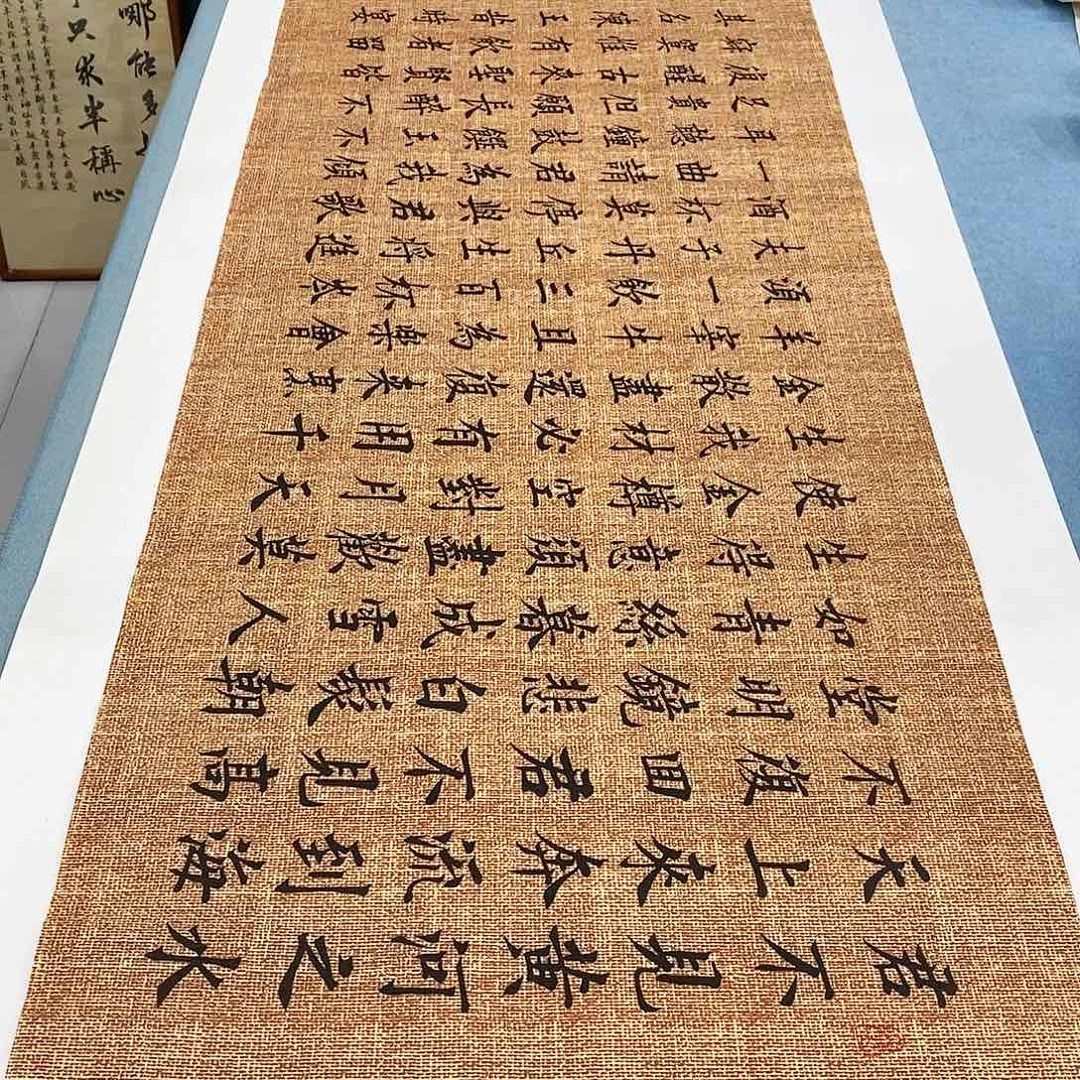 君不見黃河之水
天上來奔流到海
不復回君不見高
堂明鏡悲白髮朝
如青絲暮成雪人
生得意須盡歡莫
使金樽空對月天
生我材必有用千
金散盡還復來烹
羊宰牛且為樂會
須一飲三百杯岑
夫子丹丘生將進
酒杯莫停與君歌
一曲請君為我傾
耳聽鐘鼓饌玉不
足貴但願長醉不
復醒古來聖賢皆
寂寞惟有飲者留
其名陳王昔時宴
哪能多
只求半稱心